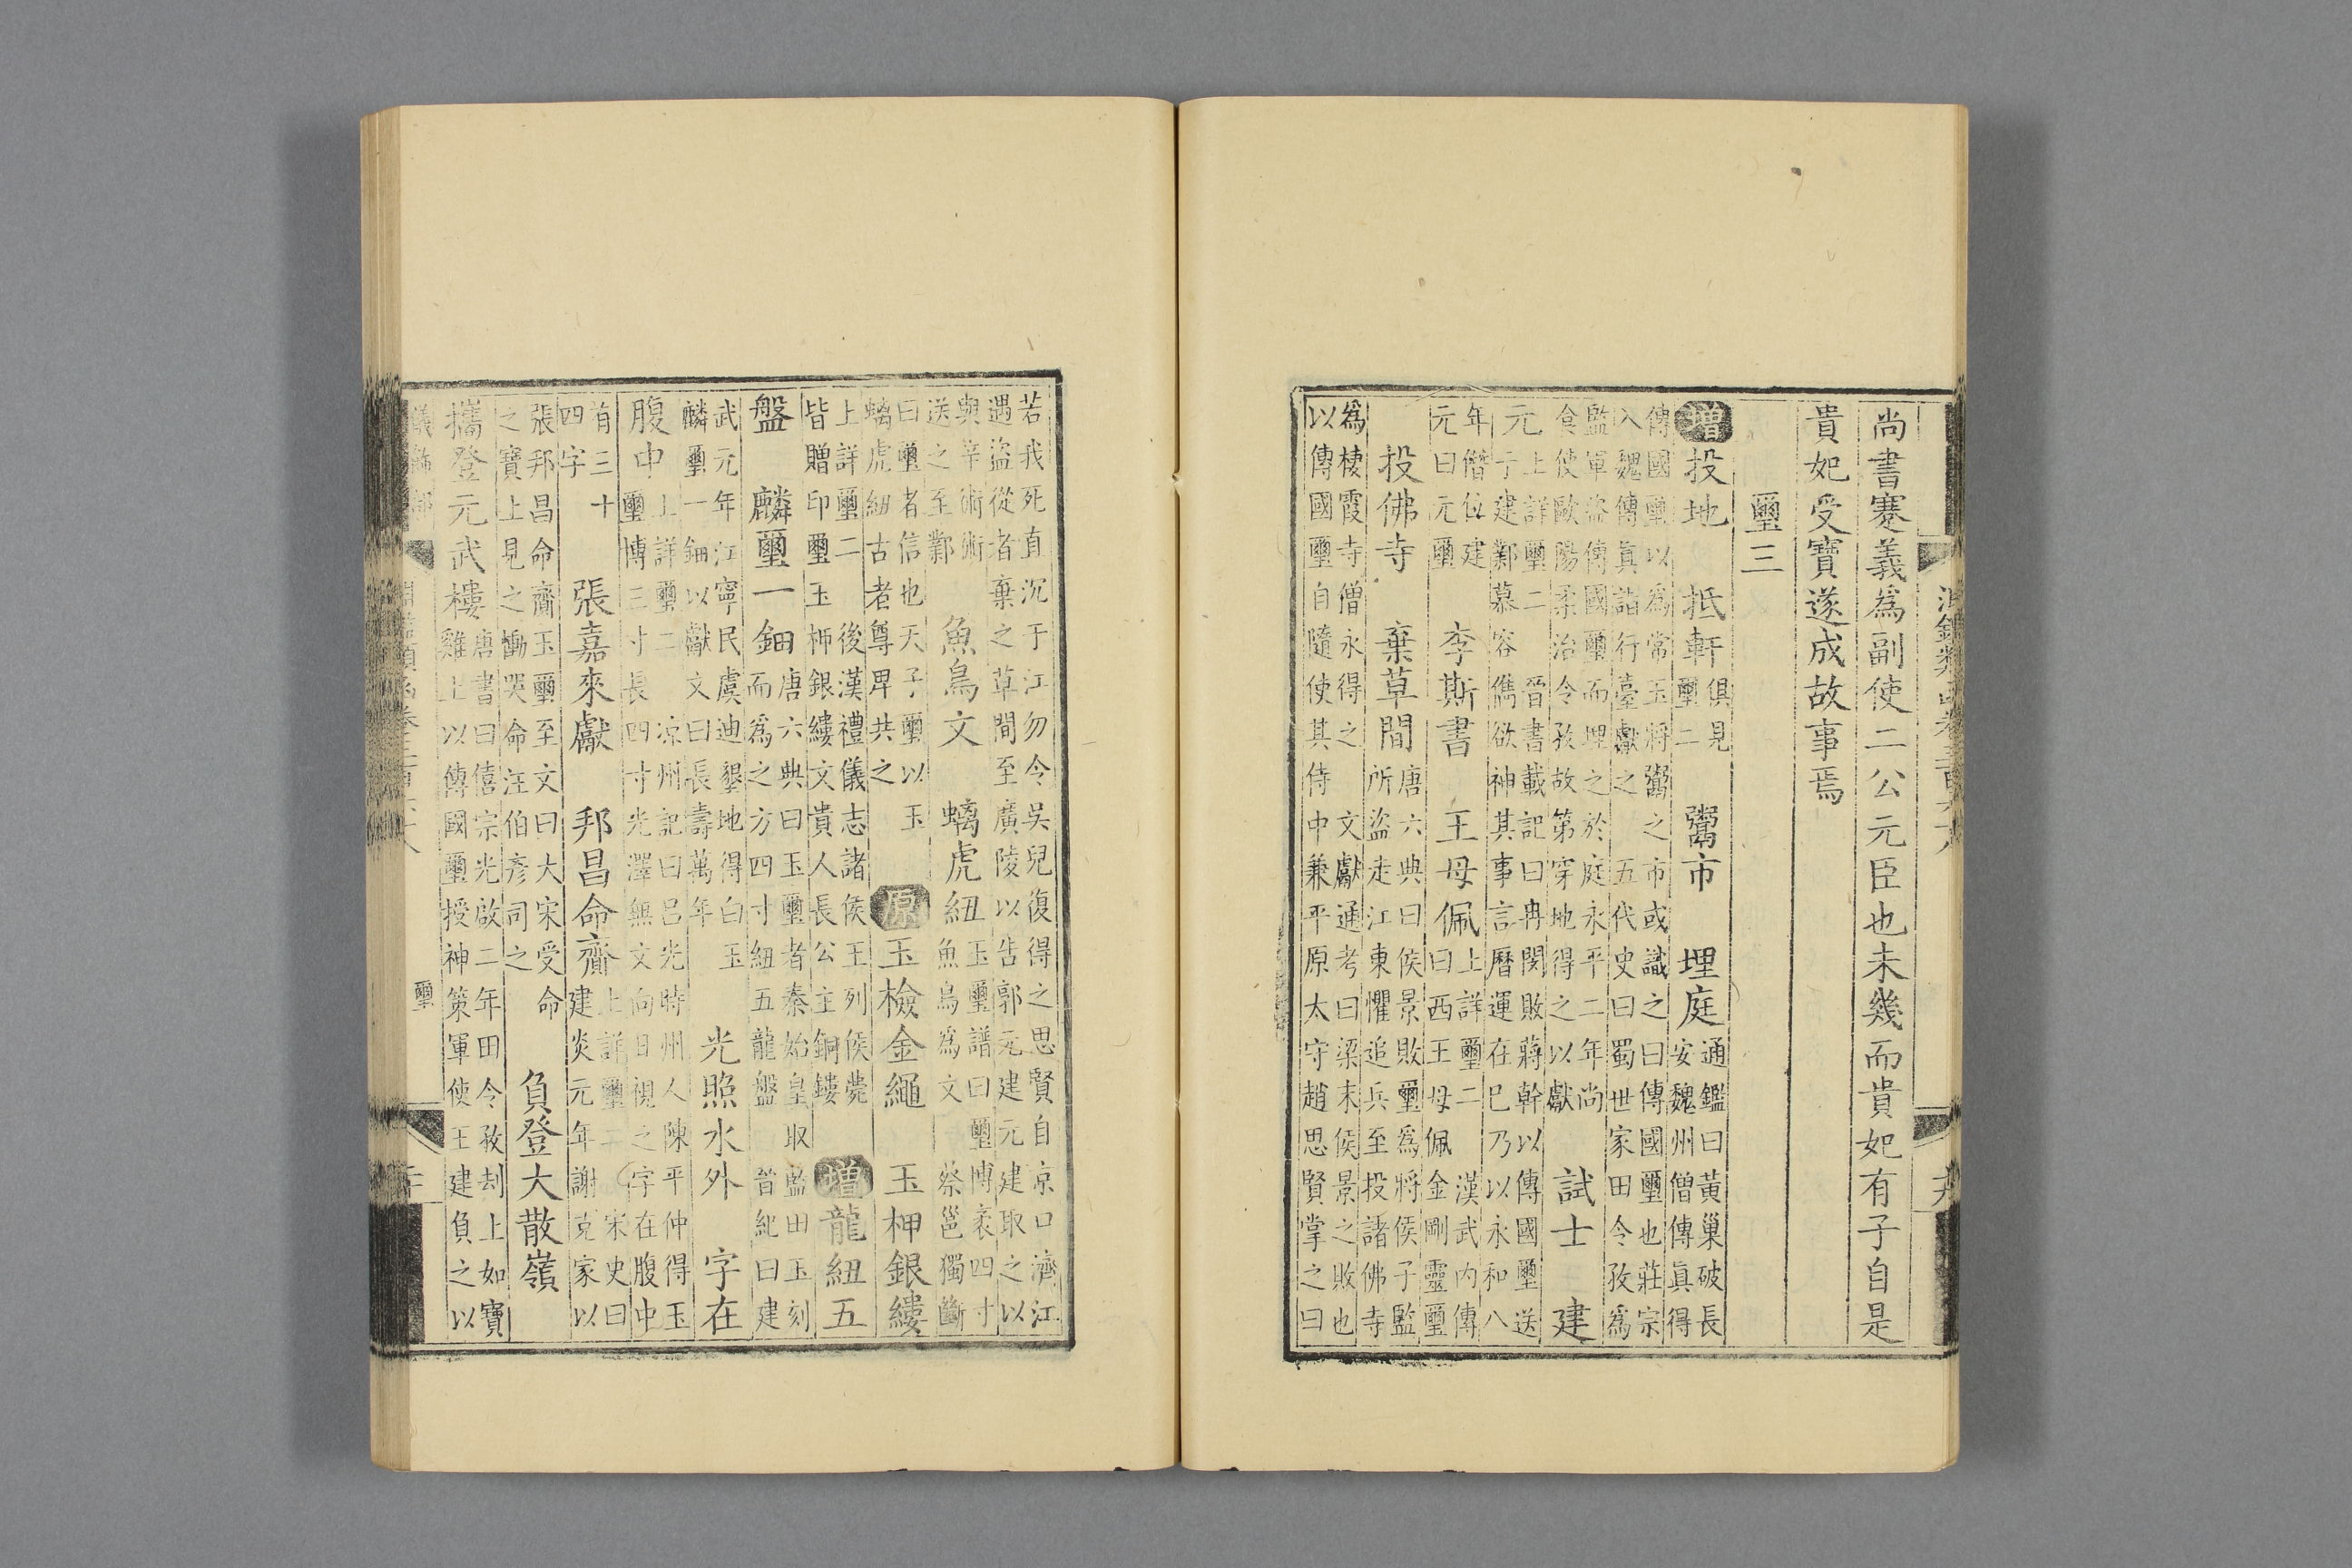 尚書蹇義爲副使二公元臣也未幾而貴妃有子自是
貴妃受寶遂成故事焉
璽三
增 投地 抵軒 俱見
璽二 鬻市 埋庭 通鑑曰黃巢破長
安魏州僧傳眞得
傳國璽以爲常玉將鬻之市或識之曰傳國璽也莊宗
入魏傳眞詣行臺獻之 五代史曰蜀世家田令孜爲
監軍盜傳國璽而埋之於庭永平二年尚
食使歐陽柔治令孜故第穿地得之以獻 試士 建
元 上詳璽二 晉書載記曰冉閔敗蔣幹以傳國璽送
于建鄴 慕容儁欲神其事言曆運在已乃以永和八
年僭位建
元曰元璽 李斯書 王母佩 上詳璽二 漢武內傳
曰西王母佩金剛靈璽
投佛寺 棄草間 唐六典曰侯景敗璽爲將侯子監
所盜走江東懼追兵至投諸佛寺
爲棲霞寺僧永得之 文獻通考曰梁末侯景之敗也
以傳國璽自隨使其侍中兼平原太守趙思賢掌之曰
若我死直沉于江勿令吳兒復得之思賢自京口濟江
遇盜從者棄之草間至廣陵以告郭元建元建取之以
與辛術術
送之至鄴 魚鳥文 螭虎紐 玉璽譜曰璽博袤四寸
魚鳥爲文 蔡邕獨斷
曰璽者信也天子璽以玉
螭虎紐古者尊卑共之 原 玉檢金繩 玉柙銀縷
上詳璽二 後漢禮儀志諸侯王列侯薨
皆贈印璽玉柙銀縷文貴人長公主銅鏤 增 龍紐五
盤 麟璽一鈿 唐六典曰玉璽者秦始皇取藍田玉刻
而爲之方四寸紐五龍盤 晉紀曰建
武元年江寧民虞迪墾地得白玉
麟璽一鈿以獻文曰長壽萬年 光照水外 字在
腹中 上詳璽二 凉州記曰呂光時州人陳平仲得玉
璽博三寸長四寸光澤無文向日視之字在腹中
有三十
四字 張嘉來獻 邦昌命齎 上詳璽二 宋史曰
建炎元年謝克家以
張邦昌命齎玉璽至文曰大宋受命
之寶上見之慟哭命汪伯彥司之 負登大散嶺
攜登元武樓 唐書曰僖宗光啟二年田令孜刦上如寶
雞上以傳國璽授神策軍使王建負之以
璽